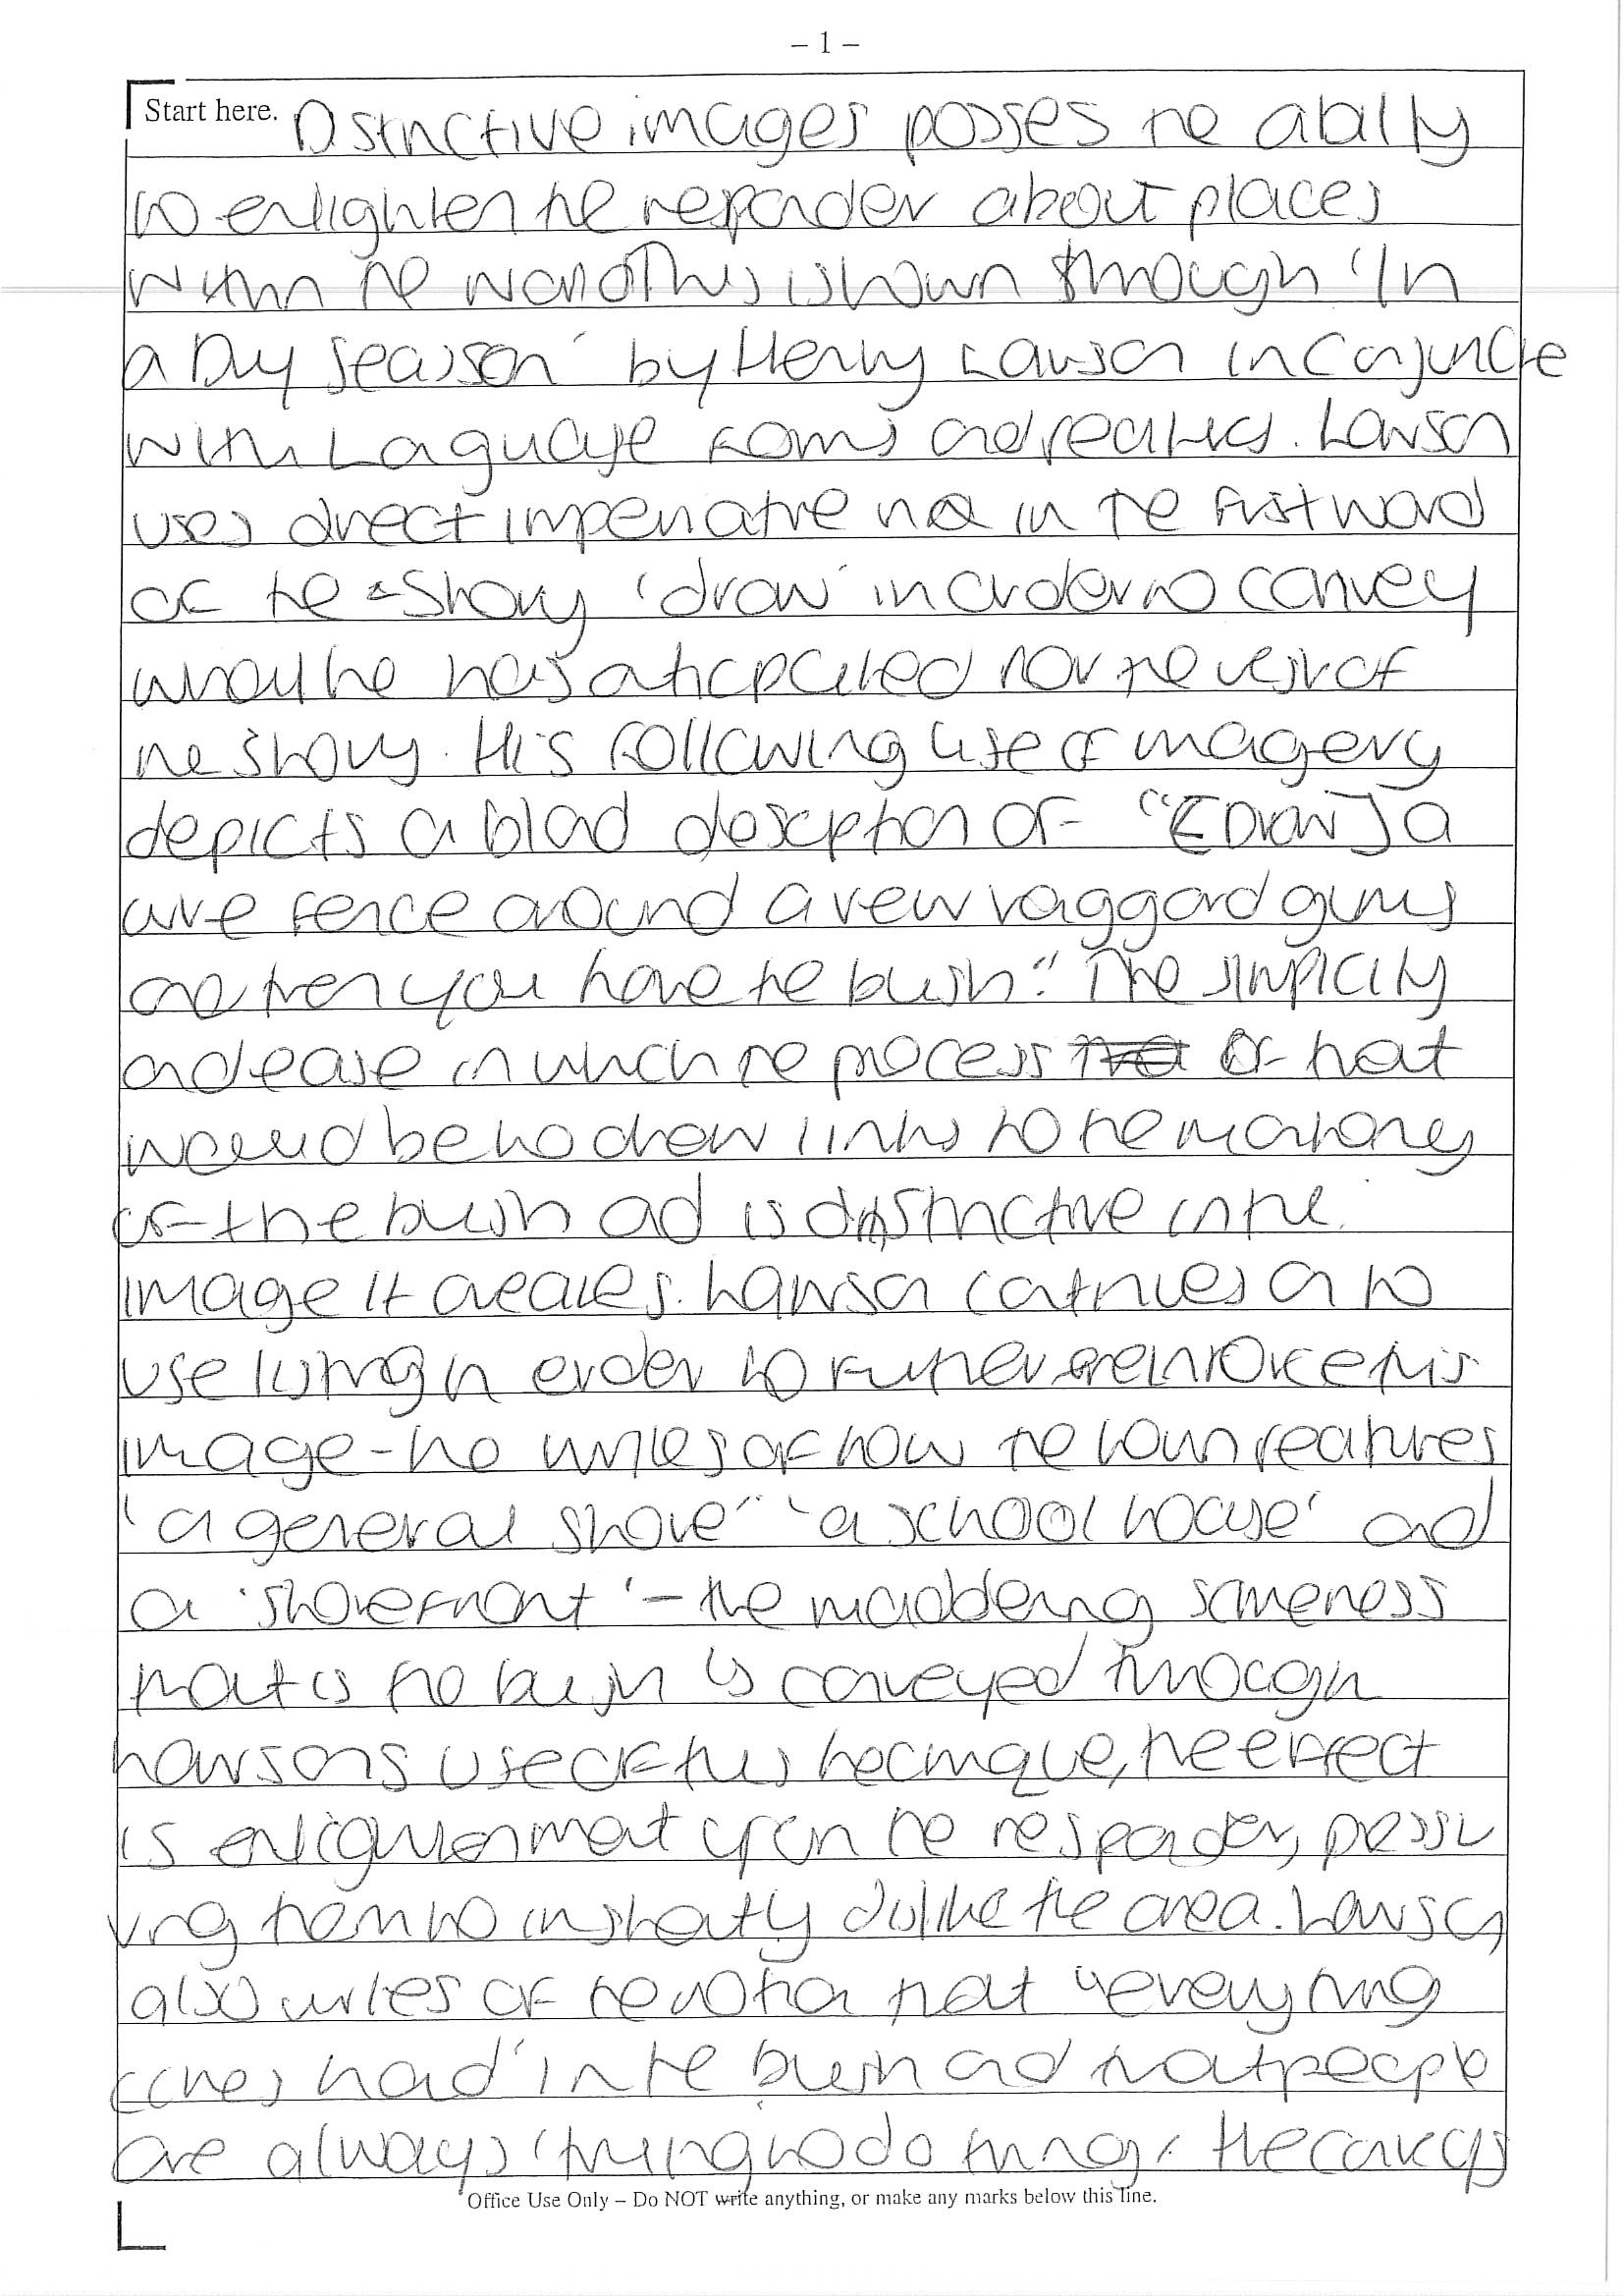 – 1 –
Start here. Distinctive images posses the ability
to enlighten the responder about places
within the world This is shown through 'In
a Dry Season' by Henry Lawson in conjuncte
with Language forms and features. Lawson
uses direct imperative in the first word
of the story 'draw' in order to convey
what he has anticipated for the rest of
the story. His following use of imagery
depicts a bland description of "[Draw] a
wire fence around a few raggard gums
and then you have the bush." The simplicity
and ease in which the process of that
would be to draw links to the monotony
of the bush and is distinctive in the
image it creates. Lawson continues on to
use listing in order to further reinforce this
image - he writes of how the town features
'a general store" 'a school house' and
a 'storefront' - the maddening sameness
that is the bush is conveyed through
Lawsons use of this technique, the effect
is enlightenment upon the responder,
them to instantly dislike the area. Lawson
also writes of the notion that "everything
comes hard' in the bush and that people
are always 'trying to do things. He conveys
Office Use Only – Do NOT write anything, or make any marks below this line.